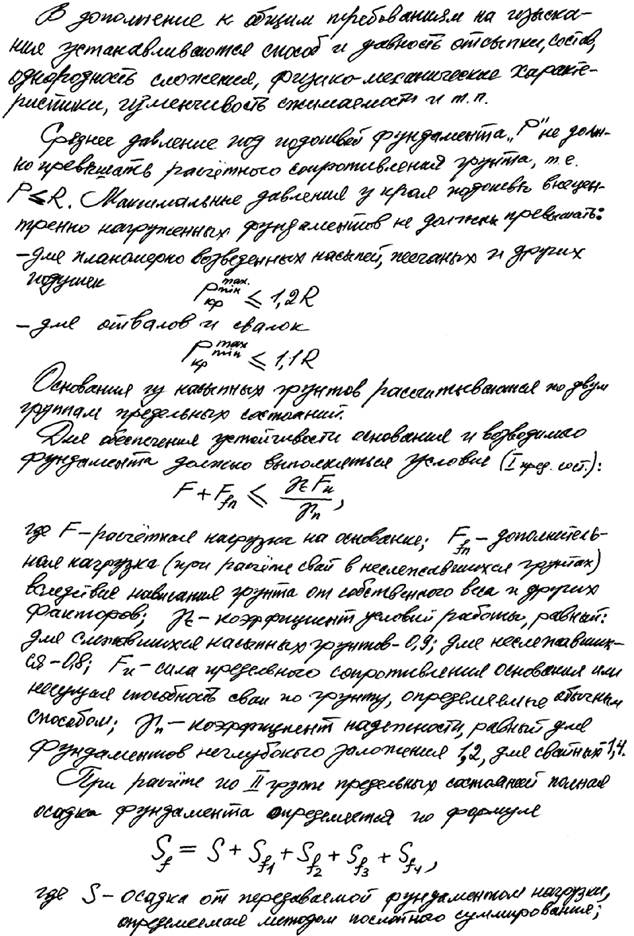 В дополнение к общим требованиям на изыска-
ния устанавливаются способ и давность отсыпки, состав,
однородность сложения, физико-механические характе-
ристики, изменчивость сжимаемость и т.п.
Среднее давление под подошвой фундамента "P" не долж-
но превышать расчётного сопротивления грунта, т.е.
P ≤ R. Максимальные давления у края подошвы внецен-
тренно нагруженных фундаментов не должны превышать:
- для планомерно возведенных насыпей, песчаных и других
подушек
P кр max. min ≤ 1,2R
- для отвалов и свалок
P кр max min ≤ 1,1R
Основания из насыпных грунтов рассчитываются по двум
группам предельных состояний.
Для обеспечения устойчивости основания и возводимого
фундамента должно выполняться условия (I пред. сост.):
F + F_fn ≤ γc Fu / γn,
где F - расчётная нагрузка на основание; F_fn - дополнитель-
ная нагрузка (при расчёте свай в неслежавшихся грунтах)
вследствие нависания грунта от собственного веса и других
факторов; γc - коэффициент условий работы, равный:
для слежавшихся насыпных грунтов - 0,9; для неслежавших-
ся - 0,8; Fu - сила предельного сопротивления основания или
несущая способность сваи по грунту, определяемые обычным
способом; γn - коэффициент надежности, равный для
фундаментов неглубокого заложения 1,2, для свайных 1,4.
При расчёте по II группе предельных состояний полная
осадка фундамента определяется по формуле
S_f = S + S_f1 + S_f2 + S_f3 + S_f4,
где S - осадка от передаваемой фундаментом нагрузки,
определяемая методом послойного суммирования;